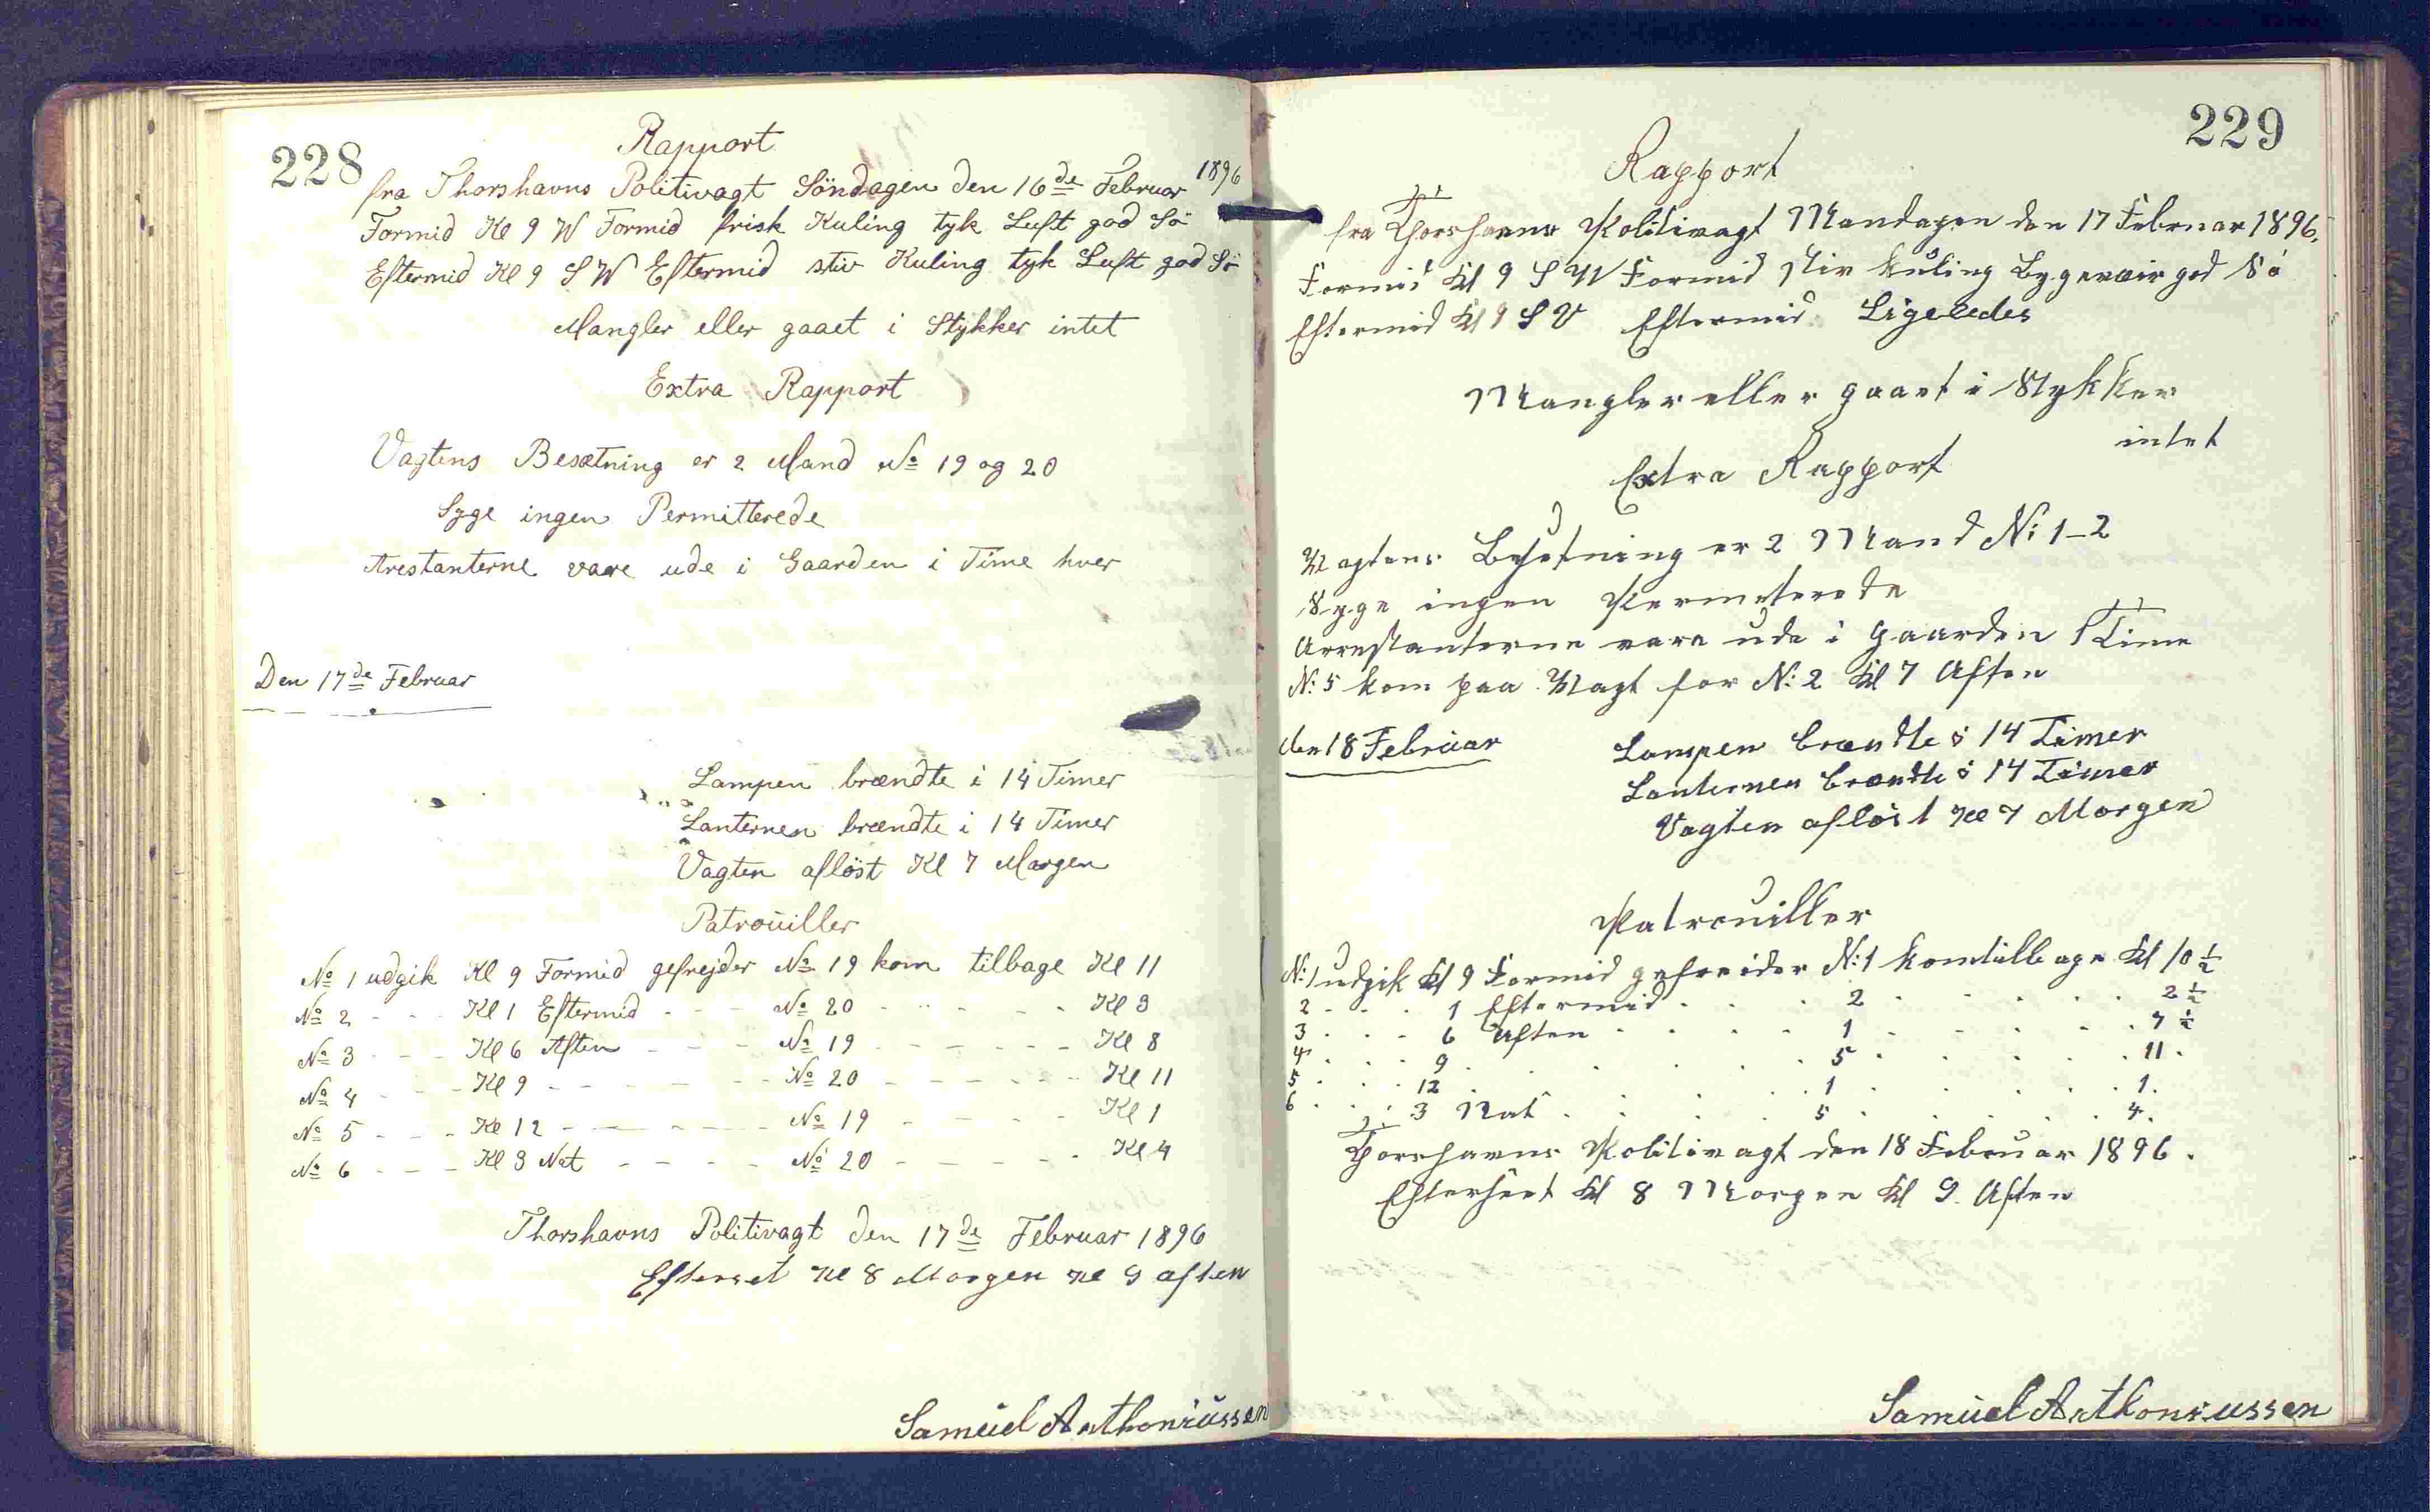 228
Rapport
fra Thorshavns Politivagt Söndagen den 16de Februar 1896
Formid Kl 9 W Formid frisk Kuling tyk Luft god Sö
Eftermid Kl 9 S W Eftermid stiv Kuling tyk Luft god Sö
Mangler eller gaaet i Stykker intet
Extra Rapport
Vagtens Besætning er 2 Mand No 19 og 20
Syge ingen Permitterede
Arestanterne vare ude i Gaarden i Time hver
Den 17de Februar
Lampen brændte i 14 Timer
Lanternen brændte i 14 Timer
Vagten aflöst Kl 7 Morgen
Patrouiller
No 1 udgik Kl 9 Formid gefrejder No 19 kom tilbage Kl 11
No 2 - - - Kl 1 Eftermid - - - No 20 - - - - - Kl 3
No 3 - - - Kl 6 Aften - - - No 19 - - - - - - Kl 8
No 4 - - - Kl 9 - - - - - - No 20 - - - - - - Kl 11
No 5 - - - Kl 12 - - - - - - No 19 - - - - - Kl 1
No 6 - - - Kl 3 Nat - - - - No 20 - - - - - Kl 4
Thorshavns Politivagt den 17de Februar 1896
Efterset Kl 8 Morgen Kl 9 aften
Samuel Anthoniussen
229
Rapport
fra Thorshavns Politivagt Mandagen den 17 Februar 1896.
Formid Kl 9 S W Formid stiv Kuling Bygevæir god Sö
Eftermid Kl 9 S V Eftermid Ligeledes
Mangler eller gaaet i Stykker
intet
Extra Rapport
Vagtens Besetning er 2 Mand N: 1-2
Syge ingen Permeterede
Arrestanterne vare ude i Gaarden 1 Time
N: 5 kom paa Vagt for N: 2 Kl 7 Aften
den 18 Februar
Lampen brændte i 14 Timer
Lanternen brændte i 14 Timer
Vagten aflöst Kl 7 Morgen
Patrouiller
N: 1 udgik Kl 9 Formid gefreider N: 1 kom tilbage Kl 10 1/2
2 . . . 1 Eftermid . . . 2 . . . . . 2 1/2
3 . . . 6 Aften . . . . 1 . . . . . 7 1/2
4 . . . 9 . . . . . 5 . . . . . 11 .
5 . . . 12 . . . . . 1 . . . . . 1 .
6 . . . 3 Nat . . . . 5 . . . . . 4 .
Thorshavns Politivagt den 18 Februar 1896.
Efterseet Kl 8 Morgen Kl 9 Aften
Samuel Anthoniussen